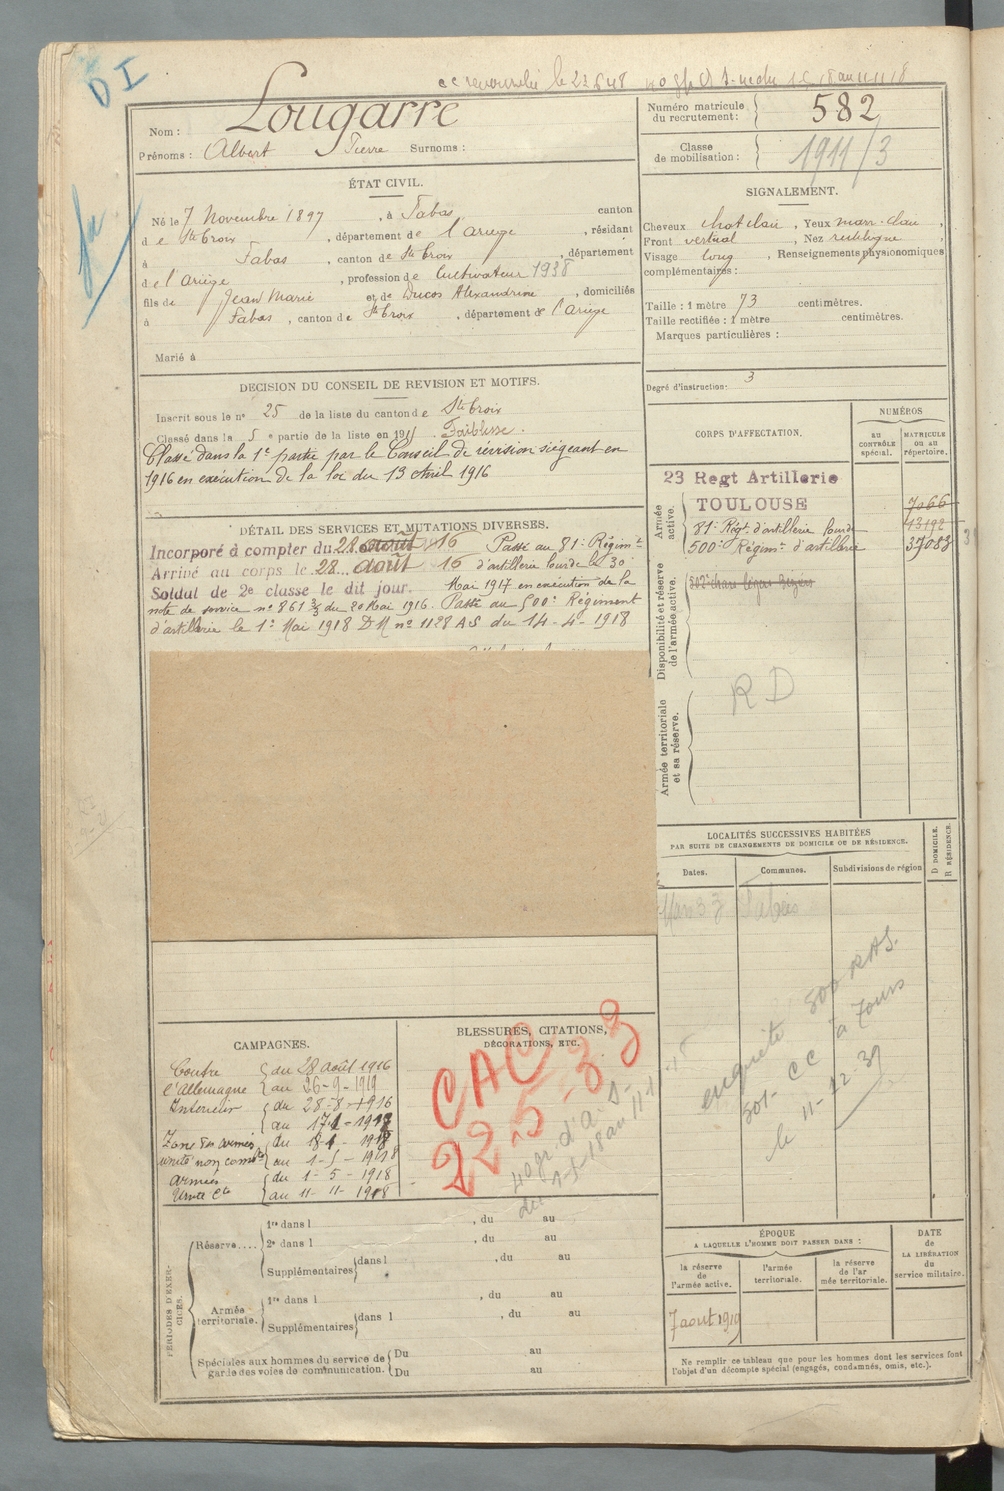 D I
cc renouvelée le 23 6 48
Nom : Lougarre
Prénoms : Albert Pierre Surnoms :
Numéro matricule du recrutement : 582
Classe de mobilisation : 1911/3
ÉTAT CIVIL.
Né le 7 Novembre 1897, à Fabas, canton
de Ste Croix, département de l'Ariège, résidant
à Fabas, canton de Ste Croix, département
de l'Ariège, profession de Cultivateur 1938
fils de Jean Marie et de Ducos Alexandrine, domiciliés
à Fabas, canton de Ste Croix, département de l'Ariège
Marié à
SIGNALEMENT.
Cheveux chat clair, Yeux marr. clair,
Front vertical, Nez rectiligne
Visage long, Renseignements physionomiques
complémentaires :
Taille : 1 mètre 73 centimètres.
Taille rectifiée : 1 mètre centimètres.
Marques particulières :
Degré d'instruction : 3
DECISION DU CONSEIL DE REVISION ET MOTIFS.
Inscrit sous le n° 25 de la liste du canton de Ste Croix
Classé dans la 5 e partie de la liste en 191 . Faiblesse.
Classé dans la 1e partie par le Conseil de révision siégeant en
1916 en exécution de la loi du 13 Avril 1916
DÉTAIL DES SERVICES ET MUTATIONS DIVERSES.
Incorporé à compter du 28 août 16 Passé au 81e Régimt
Arrivé au corps le 28 août 16 d'artillerie lourde le 30
Soldat de 2e classe le dit jour. Mai 1917 en exécution de la
note de service n° 861 3/3 du 20 Mai 1916. Passé au 500e Régiment
d'artillerie le 1e Mai 1918 DM n° 1128 AS du 14-4-1918
CORPS D'AFFECTATION.
NUMÉROS
AU CONTRÔLE spécial.
MATRICULE OU AU répertoire.
Armée active.
23 Regt Artillerie
TOULOUSE 7066
81e Régt d'artillerie lourde 13192
500e Régimt d'artillerie 37083
Disponibilité et réserve de l'armée active.
502e chars légers
R D
Armée territoriale et sa réserve.
LOCALITÉS SUCCESSIVES HABITÉES
PAR SUITE DE CHANGEMENTS DE DOMICILE OU DE RÉSIDENCE.
Dates. Communes. Subdivisions de région
D DOMICILE. R RÉSIDENCE.
Fabas
enquête 500 RAS.
501. CC à Tours
le 11-12-39
CAMPAGNES.
Contre du 28 août 1916
l'Allemagne au 26-9-1919
Intérieur du 28-8-1916
au 17-1-1918
Zone des armées du 18-1-1918
unité non combte au 1-5-1918
armées du 1-5-1918
Unité cte au 11-11-1918
BLESSURES, CITATIONS,
DÉCORATIONS, ETC.
CAC
22-5-33
PÉRIODES D'EXERCICES.
Réserve.... 1re dans l , du au
2e dans l , du au
Supplémentaires dans l , du au
Armée territoriale. 1re dans l , du au
Supplémentaires dans l , du au
Spéciales aux hommes du service de garde des voies de communication. Du au
Du au
ÉPOQUE
A LAQUELLE L'HOMME DOIT PASSER DANS :
la réserve de l'armée active.
l'armée territoriale.
la réserve de l'armée territoriale.
DATE de LA LIBÉRATION du service militaire.
7 aout 1919
Ne remplir ce tableau que pour les hommes dont les services font
l'objet d'un décompte spécial (engagés, condamnés, omis, etc.).